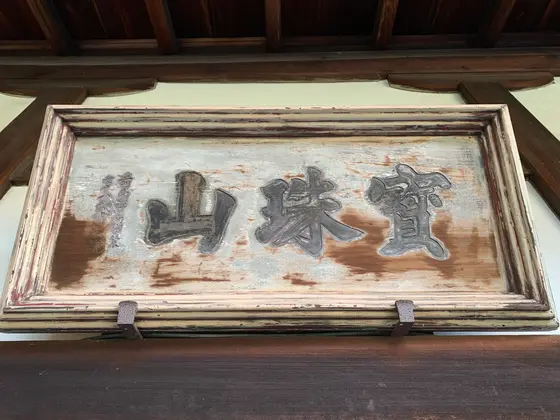 寶珠山